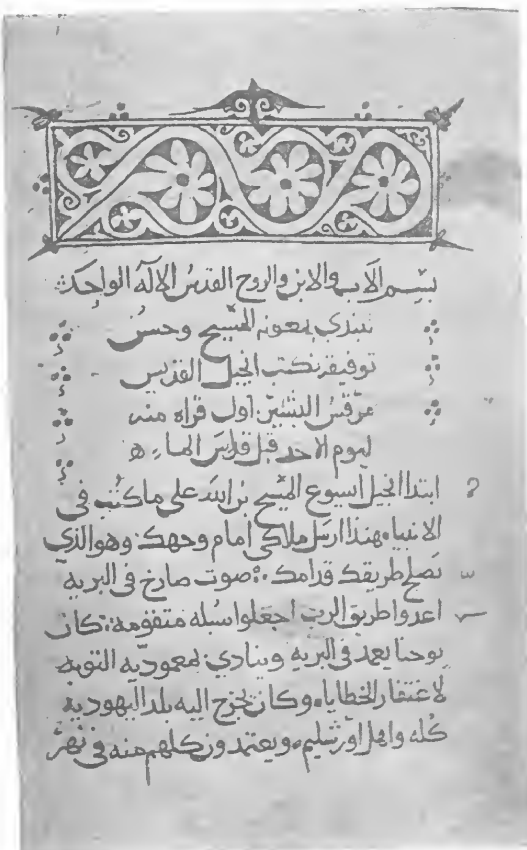 بسم الاب والابن والروح القدس الاله الواحد
نبتدي بمعونه المسيح وحسن
توفيقه نكتب انجيل القديس
مرقس البشير اول قراه منه
ليوم الاحد قبل قداس الماء
ابتدا انجيل ايسوع المسيح بن الله على ما كتب في
الانبياء هنذا ارسل ملاكي امام وجهك وهو الذي
يصلح طريقك قدامك صوت صارخ في البريه
اعدوا طريق الرب اجعلوا سبله متقومة كان
يوحنا يعمد في البريه وينادي بمعموديه التوبه
لاغتفار الخطايا وكان يخرج اليه بلد اليهودية
كله واهل اورشليم ويعتمدون كلهم منه في نهر